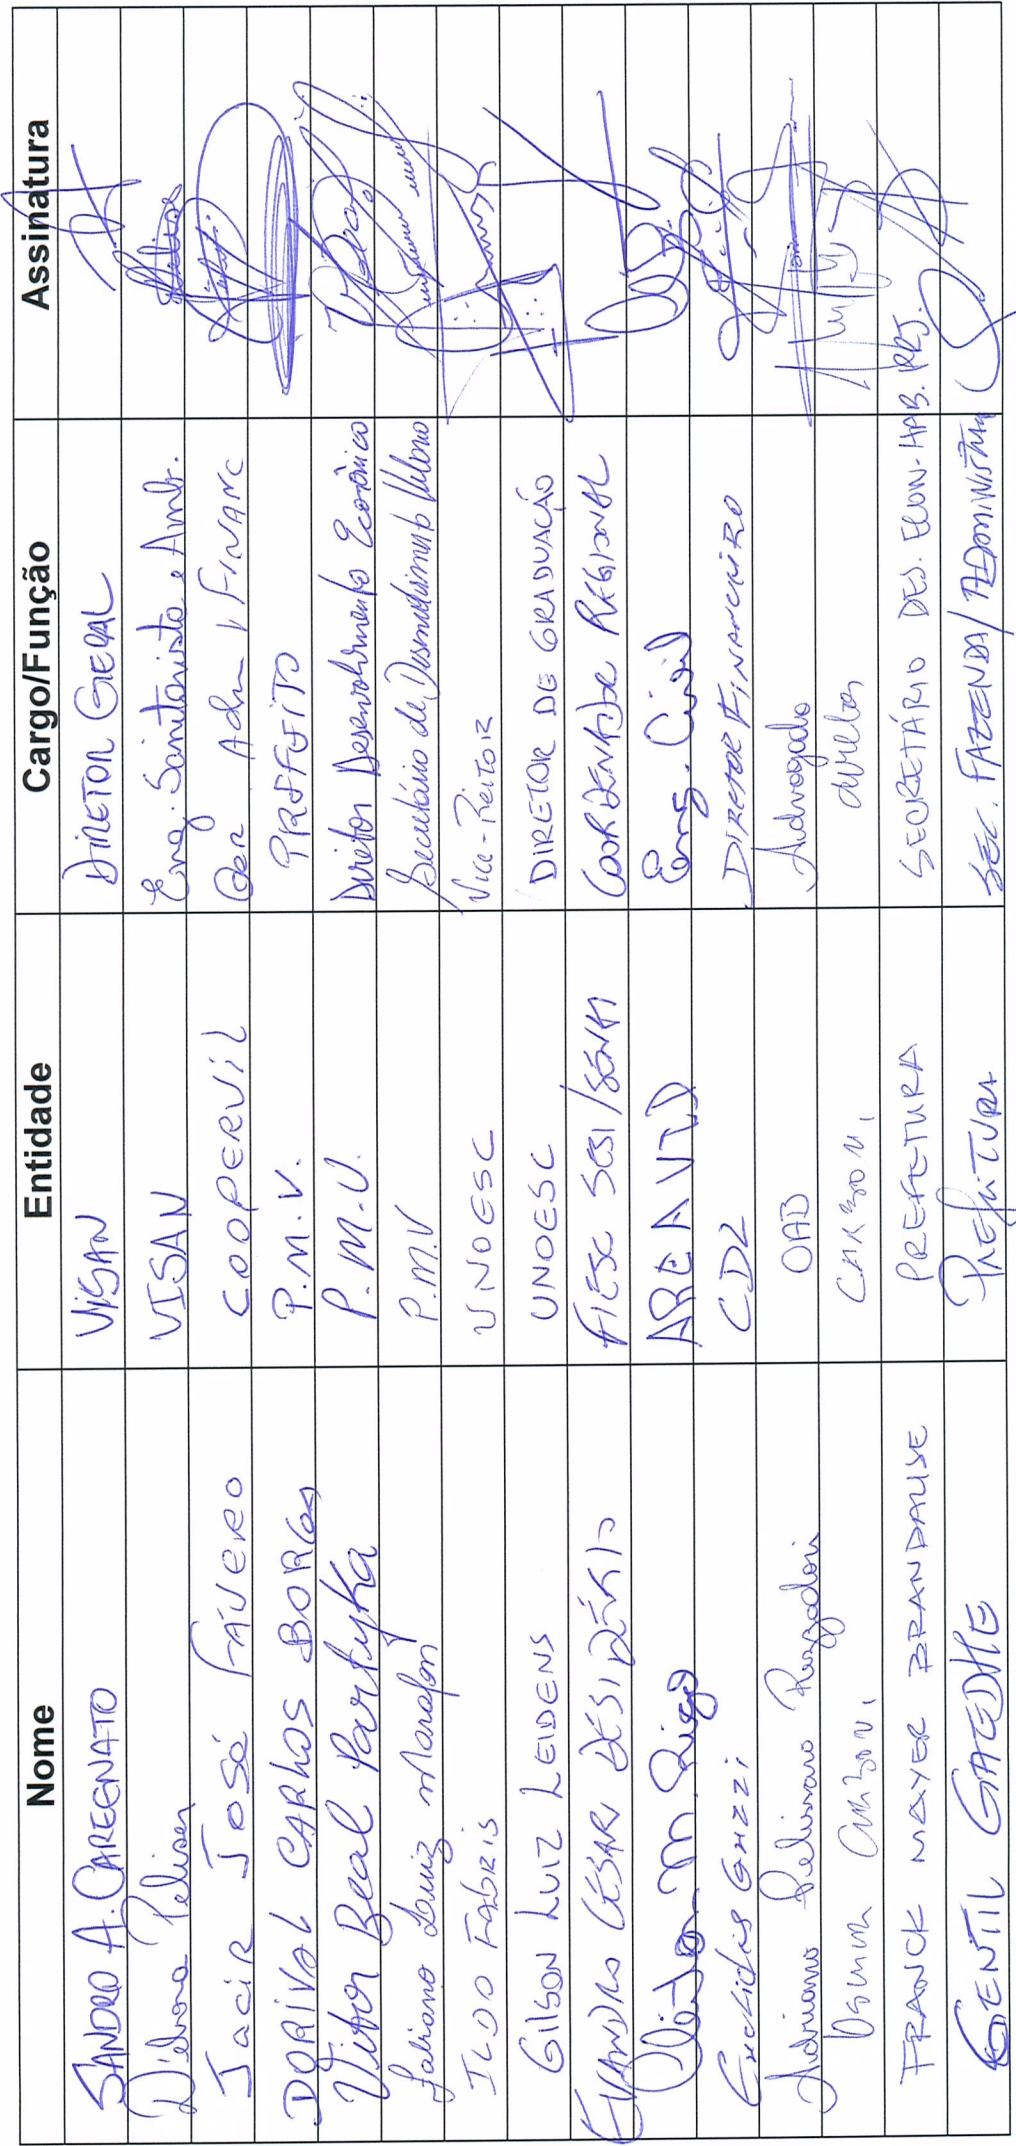 Nome Entidade Cargo/Função Assinatura
SANDRO A. CAREGNATO VISAN DIRETOR GERAL
Débora Peliser VISAN Eng. Sanitarista e Amb.
Jacir José FÁVERO COOPERVIL Adm / FINANC
DORIVAL CARLOS BORGA P.M.V. PREFEITO
Vitor Beal Partyka P.M.V. Diretor Desenvolvimento Econômico
Fabiano Luiz Marafon P.M.V Secretário de Desenvolvimento Urbano
ILDO FABRIS UNOESC Vice-Reitor
GILSON LUIZ LEIDENS UNOESC DIRETOR DE GRADUAÇÃO
EVANDRO CÉSAR DESIDÉRIO FIESC SESI/SENAI COORDENADOR REGIONAL
M. Rigo AREAVID Eng. Civil
Euclides Guzzi CDL DIRETOR FINANCEIRO
Adriano Pelissaro Rezzadori OAB Advogado
CARBONI diretor
FRANCK MAYER BRANDALISE PREFEITURA SECRETÁRIO DES. ECON. HAB.
GENTIL GAEDKE PREFEITURA SEC. FAZENDA/ADMINISTRA